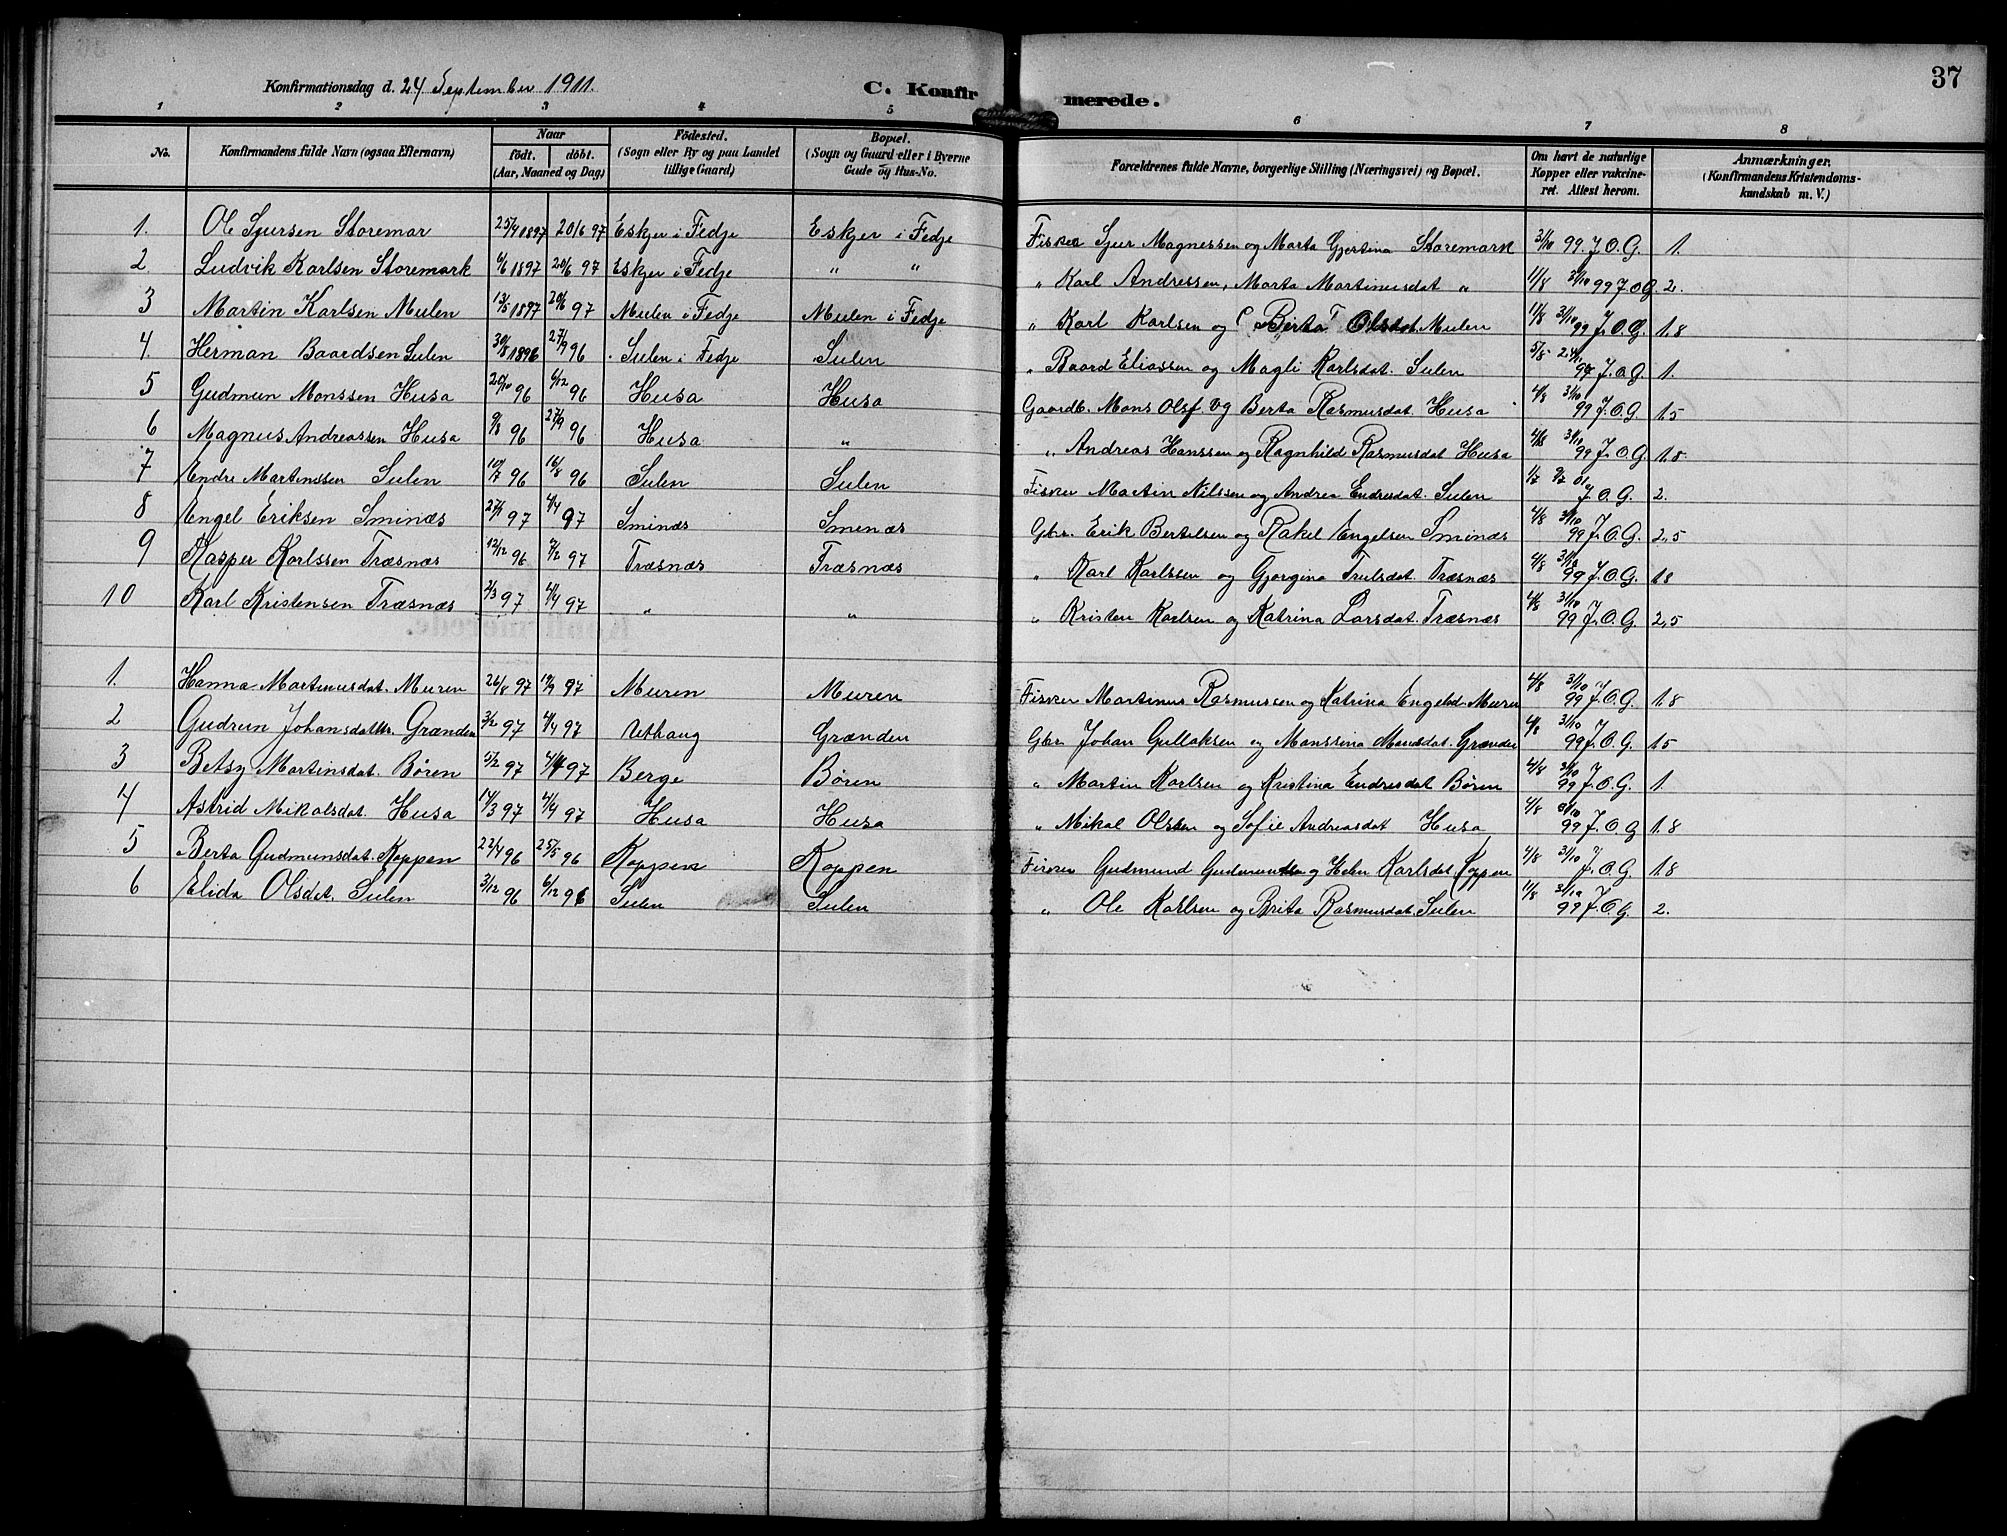 37
Konfirmationsdag d. 24 September 1911.
C. Konfirmerede.
1 2 3 4 5 6 7 8
No. Konfirmandens fulde Navn (ogsaa Efternavn) Naar født. døbt. (Aar, Maaned og Dag) Fødested. (Sogn eller By og paa Landet tillige Gaard) Bopæl. (Sogn og Gaard eller i Byerne Gade og Hus-No. Forældrenes fulde Navne, borgerlige Stilling (Næringsvei) og Bopæl. Om havt de naturlige Kopper eller vaccineret. Attest herom. Anmærkninger. (Konfirmandens Kristendomskundskab m. V.)
1. Ole Sjursen Storemar 25/4 1897 20/6 97 Eskjer i Fedje Eskjer i Fedje Fisker Sjur Magnessen og Marta Gjertina Storemark 3/10 99 J.O.G. 1.
2 Ludvik Karlsen Storemark 6/6 1897 20/6 97 Eskjer i Fedje " " " Karl Andressen, Marta Martinusdat " 11/8 31/10 99 J.O.G 2.
3 Martin Karlsen Mulen 13/5 1897 20/6 97 Mulen i Fedje Mulen i Fedje " Karl Karlsen og Berta Olsdat. Mulen 11/8 31/10 99 J.O.G. 1.8
4. Herman Baardsen Sulen 30/8 1896 27/9 96 Sulen i Fedje Sulen " Baard Eliassen og Magli Karlsdat. Sulen 5/8 J.O.G 1.
5 Gudmun Monssen Husa 20/10 96 6/12 96 Husa Husa Gaardb. Mons Olsf. og Berta Rasmusdat. Husa 4/8 31/10 99 J.O.G. 1.5
6 Magnus Andreassen Husa 9/8 96 27/9 96 Husa " " Andreas Hanssen og Ragnhild Rasmusdat Husa 4/8 31/10 99 J.O.G 1.5
7 Endre Martinssen Sulen 10/7 96 16/8 96 Sulen Sulen Fisker Martin Nilssen og Andrea Endresdat. Sulen J.O.G. 2.
8 Engel Eriksen Sminæs 27/1 97 4/4 97 Sminæs Smenæs Gbr. Erik Bertelsen og Rakel Engelsen Sminæs 4/8 31/10 99 J.O.G. 2,5
9 Kasper Karlssen Træsnæs 12/12 96 7/2 97 Træsnæs Træsnæs " Karl Karlssen og Gjorgina Trulsdat. Træsnæs 4/8 31/10 99 J.O.G. 1.8
10 Karl Kristensen Træsnæs 2/3 97 4/4 97 " " " Kristen Karlsen og Katrina Larsdat. Træsnæs 4/8 31/10 99 J.O.G. 2,5
1. Hanna Martinusdat. Muren 26/8 97 19/9 97 Muren Muren Fisker Martinus Rasmussen og Katrina Engelsd. Muren 4/8 31/10 99 J.O.G. 1.8
2 Gudrun Johansdatter. Grænden 3/2 97 4/4 97 Uthaug Grænden Gbr. Johan Gullaksen og Monssina Monsdat. Grænden 4/8 31/10 99 J.O.G. 1.5
3 Betsy Martinsdat. Børen 15/2 97 4/4 97 Berge Børen " Martin Karlsen og Kristina Endresdat Børen 4/8 31/10 99 J.O.G. 1.
4 Astrid Mikalsdat. Husa 14/3 97 4/4 97 Husa Husa " Mikal Olsen og Sofie Andreasdat Husa 4/8 31/10 99 J.O.G 1.8
5 Berta Gudmunsdat. Koppen 22/4 96 25/5 96 Koppen Koppen Fisker Gudmund Gudmundsen og Helen Karlsdat. Koppen 4/8 31/10 J.O.G 1.8
6 Elida Olsdat. Sulen 3/12 96 6/12 96 Sulen Sulen " Ole Karlsen og Brita Rasmusdat. Sulen 11/8 31/10 99 J.O.G. 2.